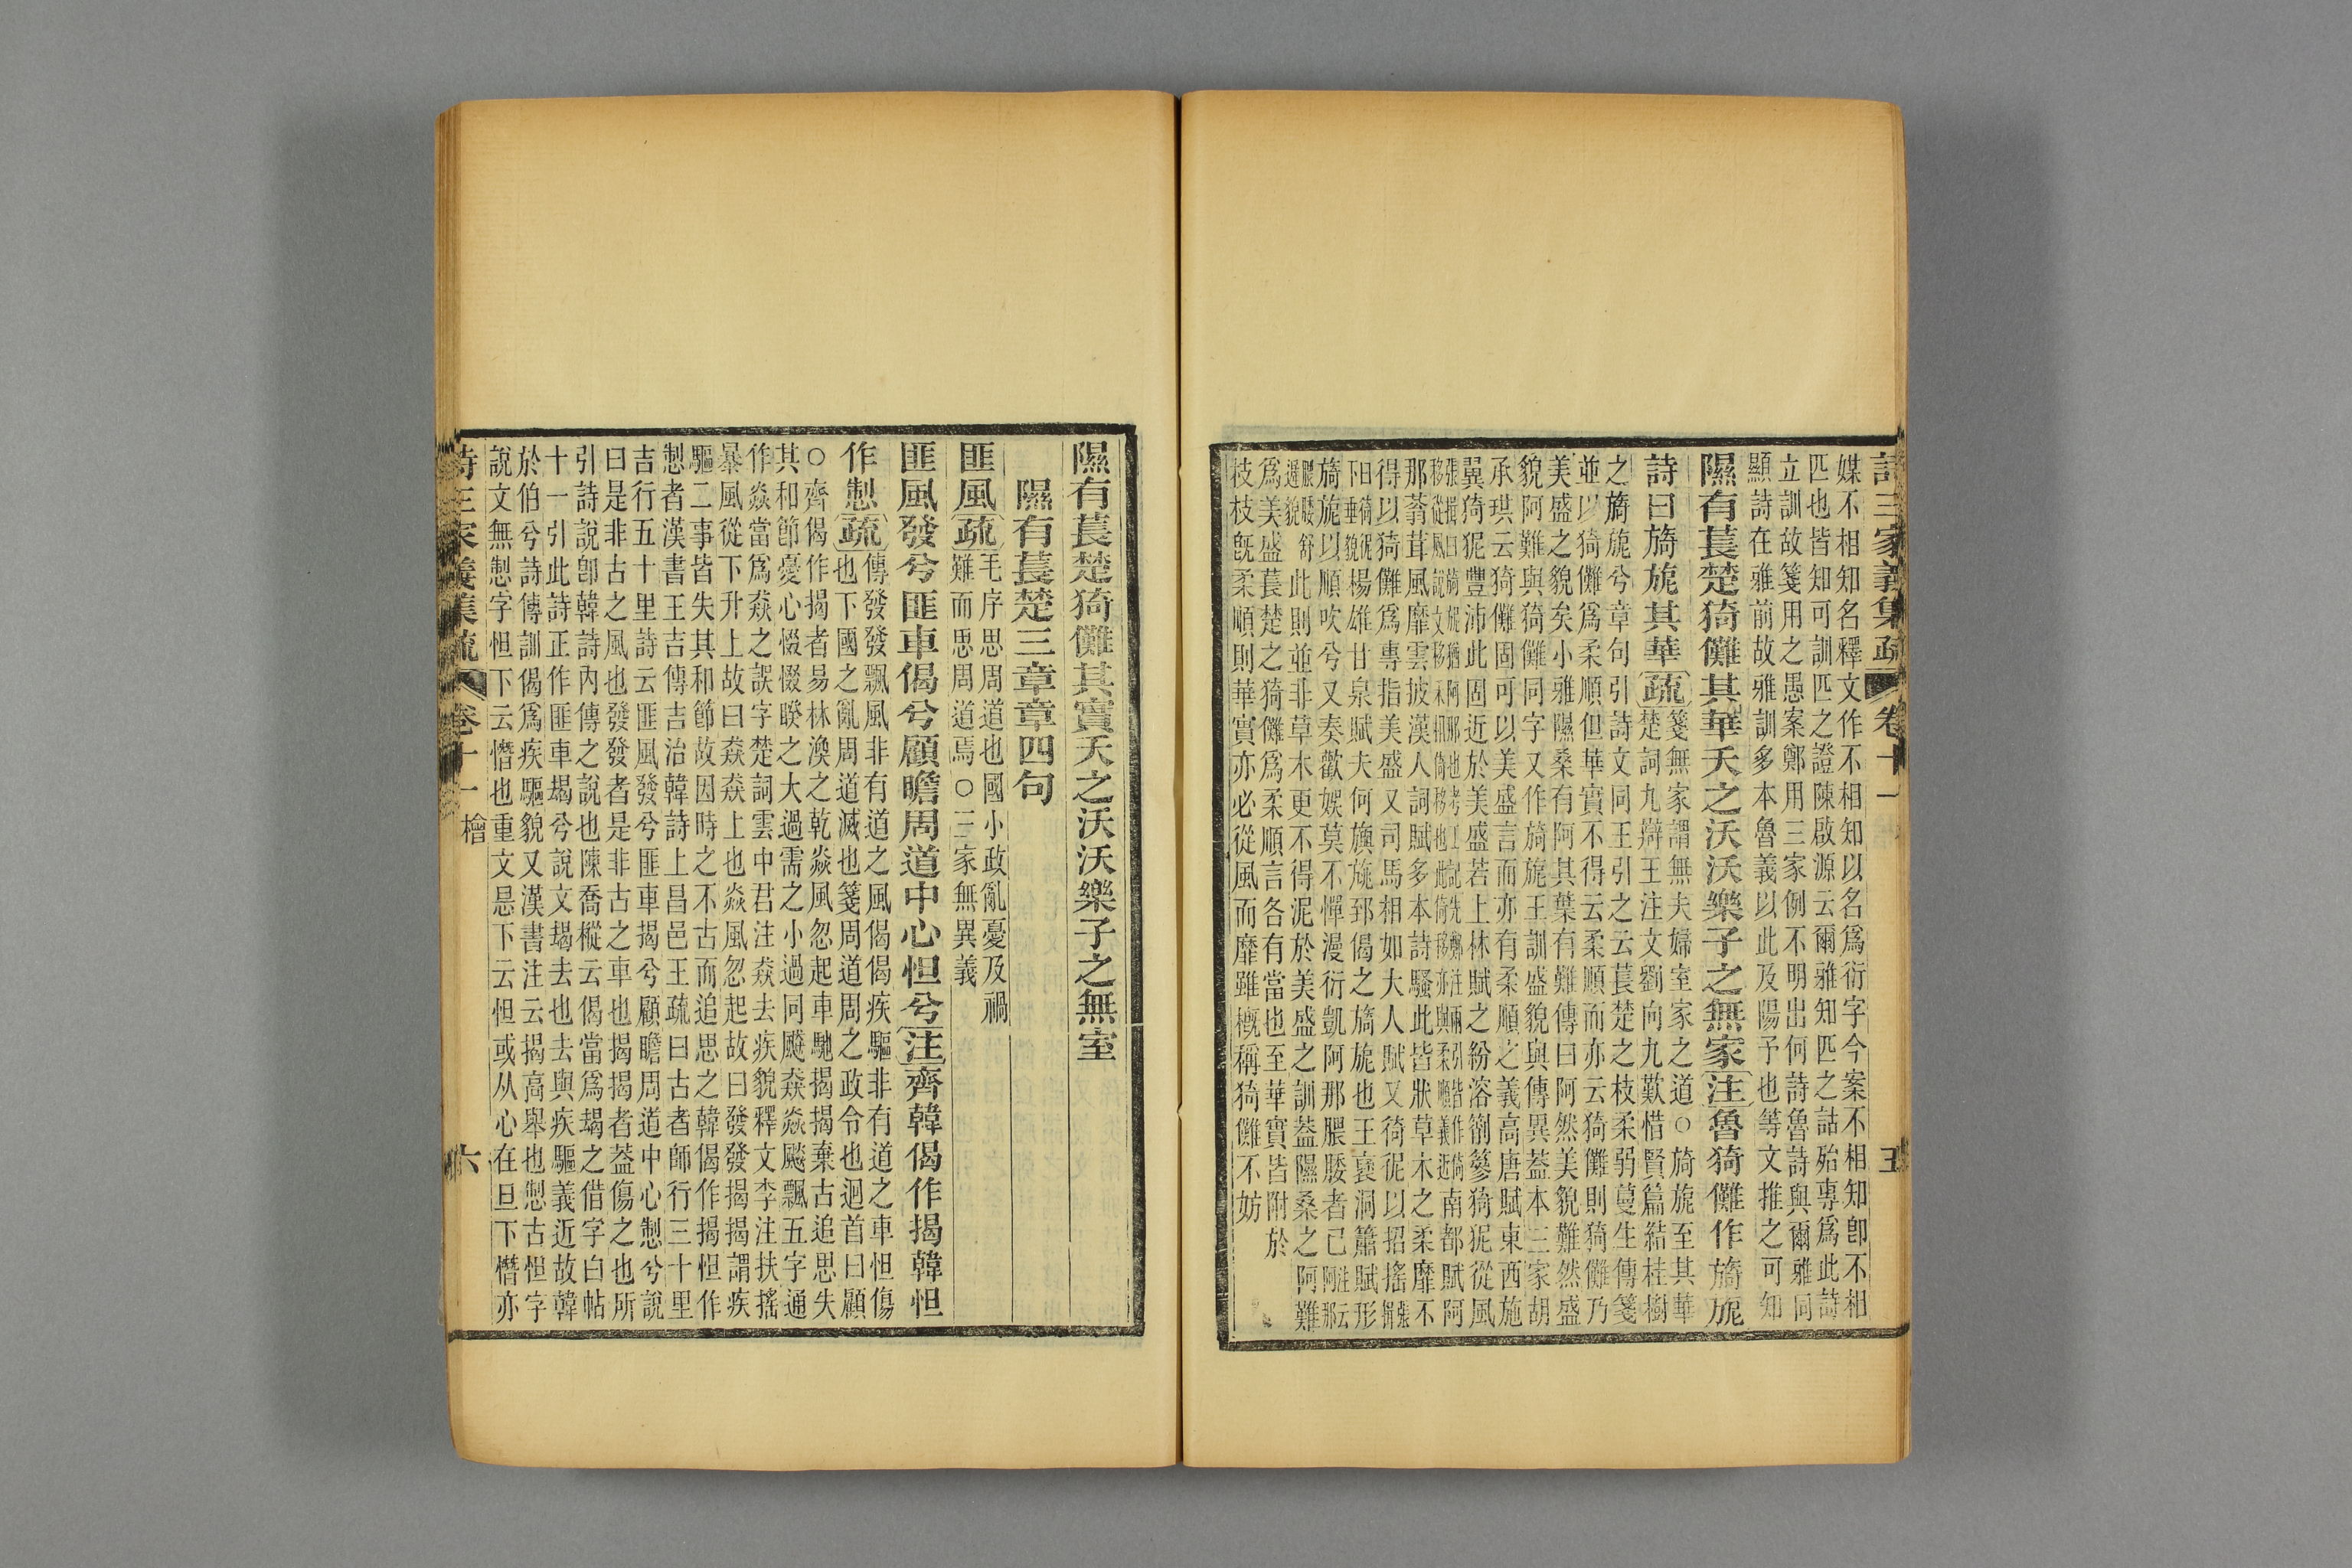 詩三家義集疏 卷十一 五
媒不相知名釋文作不相知以名爲衍字今案不相知卽不相
匹也皆知可訓匹之證陳啟源云爾雅知匹之詁殆專爲此詩
立訓故箋用之愚案鄭用三家例不明出何詩魯詩與爾雅同
顯詩在雅前故雅訓多本魯義以此及陽予也等文推之可知
隰有萇楚猗儺其華夭之沃沃樂子之無家注魯猗儺作旖旎
詩曰旖旎其華疏
箋無家謂無夫婦室家之道○旖旎至其華
楚詞九辯王注文劉向九歎惜賢篇結桂樹
之旖旎兮章句引詩文同王引之云萇楚之枝柔弱蔓生傳箋
並以猗儺爲柔順但華實不得云柔順而亦云猗儺則猗儺乃
美盛之貌矣小雅隰桑有阿其葉有難傳曰阿然美貌難然盛
貌阿難與猗儺同字又作旖旎王訓盛貌與傳異蓋本三家胡
承珙云猗儺固可以美盛言而亦有柔順之義高唐賦東西施
翼猗狔豐沛此固近於美盛若上林賦之紛溶箾蔘猗狔從風
張揖曰旖旎猶阿那也考工記先鄭注兩引皆作倚
移從風說文移禾相倚移也此倚移亦與柔順義近南都賦阿
那蓊茸風靡雲披漢人詞賦多本詩騷此皆狀草木之柔靡不
得以猗儺爲專指美盛又司馬相如大人賦又徛狔以招搖張揖
曰徛狔下垂貌楊雄甘泉賦夫何旟旐郅偈之旖旎也王襃洞簫賦形
旖旎以順吹兮又奏歡娛莫不憚漫衍凱阿那腲腇者已注云阿那
腲腇舒遲貌此則並非草木更不得泥於美盛之訓蓋隰桑之阿難
爲美盛萇楚之猗儺爲柔順言各有當也至華實皆附於
枝枝旣柔順則華實亦必從風而靡雖槪稱猗儺不妨
隰有萇楚猗儺其實夭之沃沃樂子之無室
隰有萇楚三章章四句
匪風疏
毛序思周道也國小政亂憂及禍
難而思周道焉○三家無異義
匪風發兮匪車偈兮顧瞻周道中心怛兮注齊韓偈作揭韓怛
作㣿疏
傳發發飄風非有道之風偈偈疾驅非有道之車怛傷
也下國之亂周道滅也箋周道周之政令也迴首曰顧
○齊偈作揭者易林渙之乾焱風忽起車馳揭揭棄古追思失
其和節憂心惙惙睽之大過需之小過同飇猋焱飈飄五字通
作焱當爲猋之誤字楚詞雲中君注猋去疾貌釋文李注扶搖
暴風從下升上故曰猋猋上也焱風忽起故曰發發揭揭謂疾
驅二事皆失其和節故因時之不古而追思之韓偈作揭怛作
㣿者漢書王吉傳吉治韓詩上昌邑王疏曰古者師行三十里
吉行五十里詩云匪風發兮匪車揭兮顧瞻周道中心㣿兮說
曰是非古之風也發發者是非古之車也揭揭者蓋傷之也所
引詩說卽韓詩內傳之說也陳喬樅云偈當爲朅之借字白帖
十一引此詩正作匪車朅兮說文朅去也去與疾驅義近故韓
於伯兮詩傳訓偈爲疾驅貌又漢書注云揭高舉也㣿古怛字
說文無㣿字怛下云憯也重文㥉下云怛或从心在旦下憯亦
詩三家義集疏 卷十一 檜 六